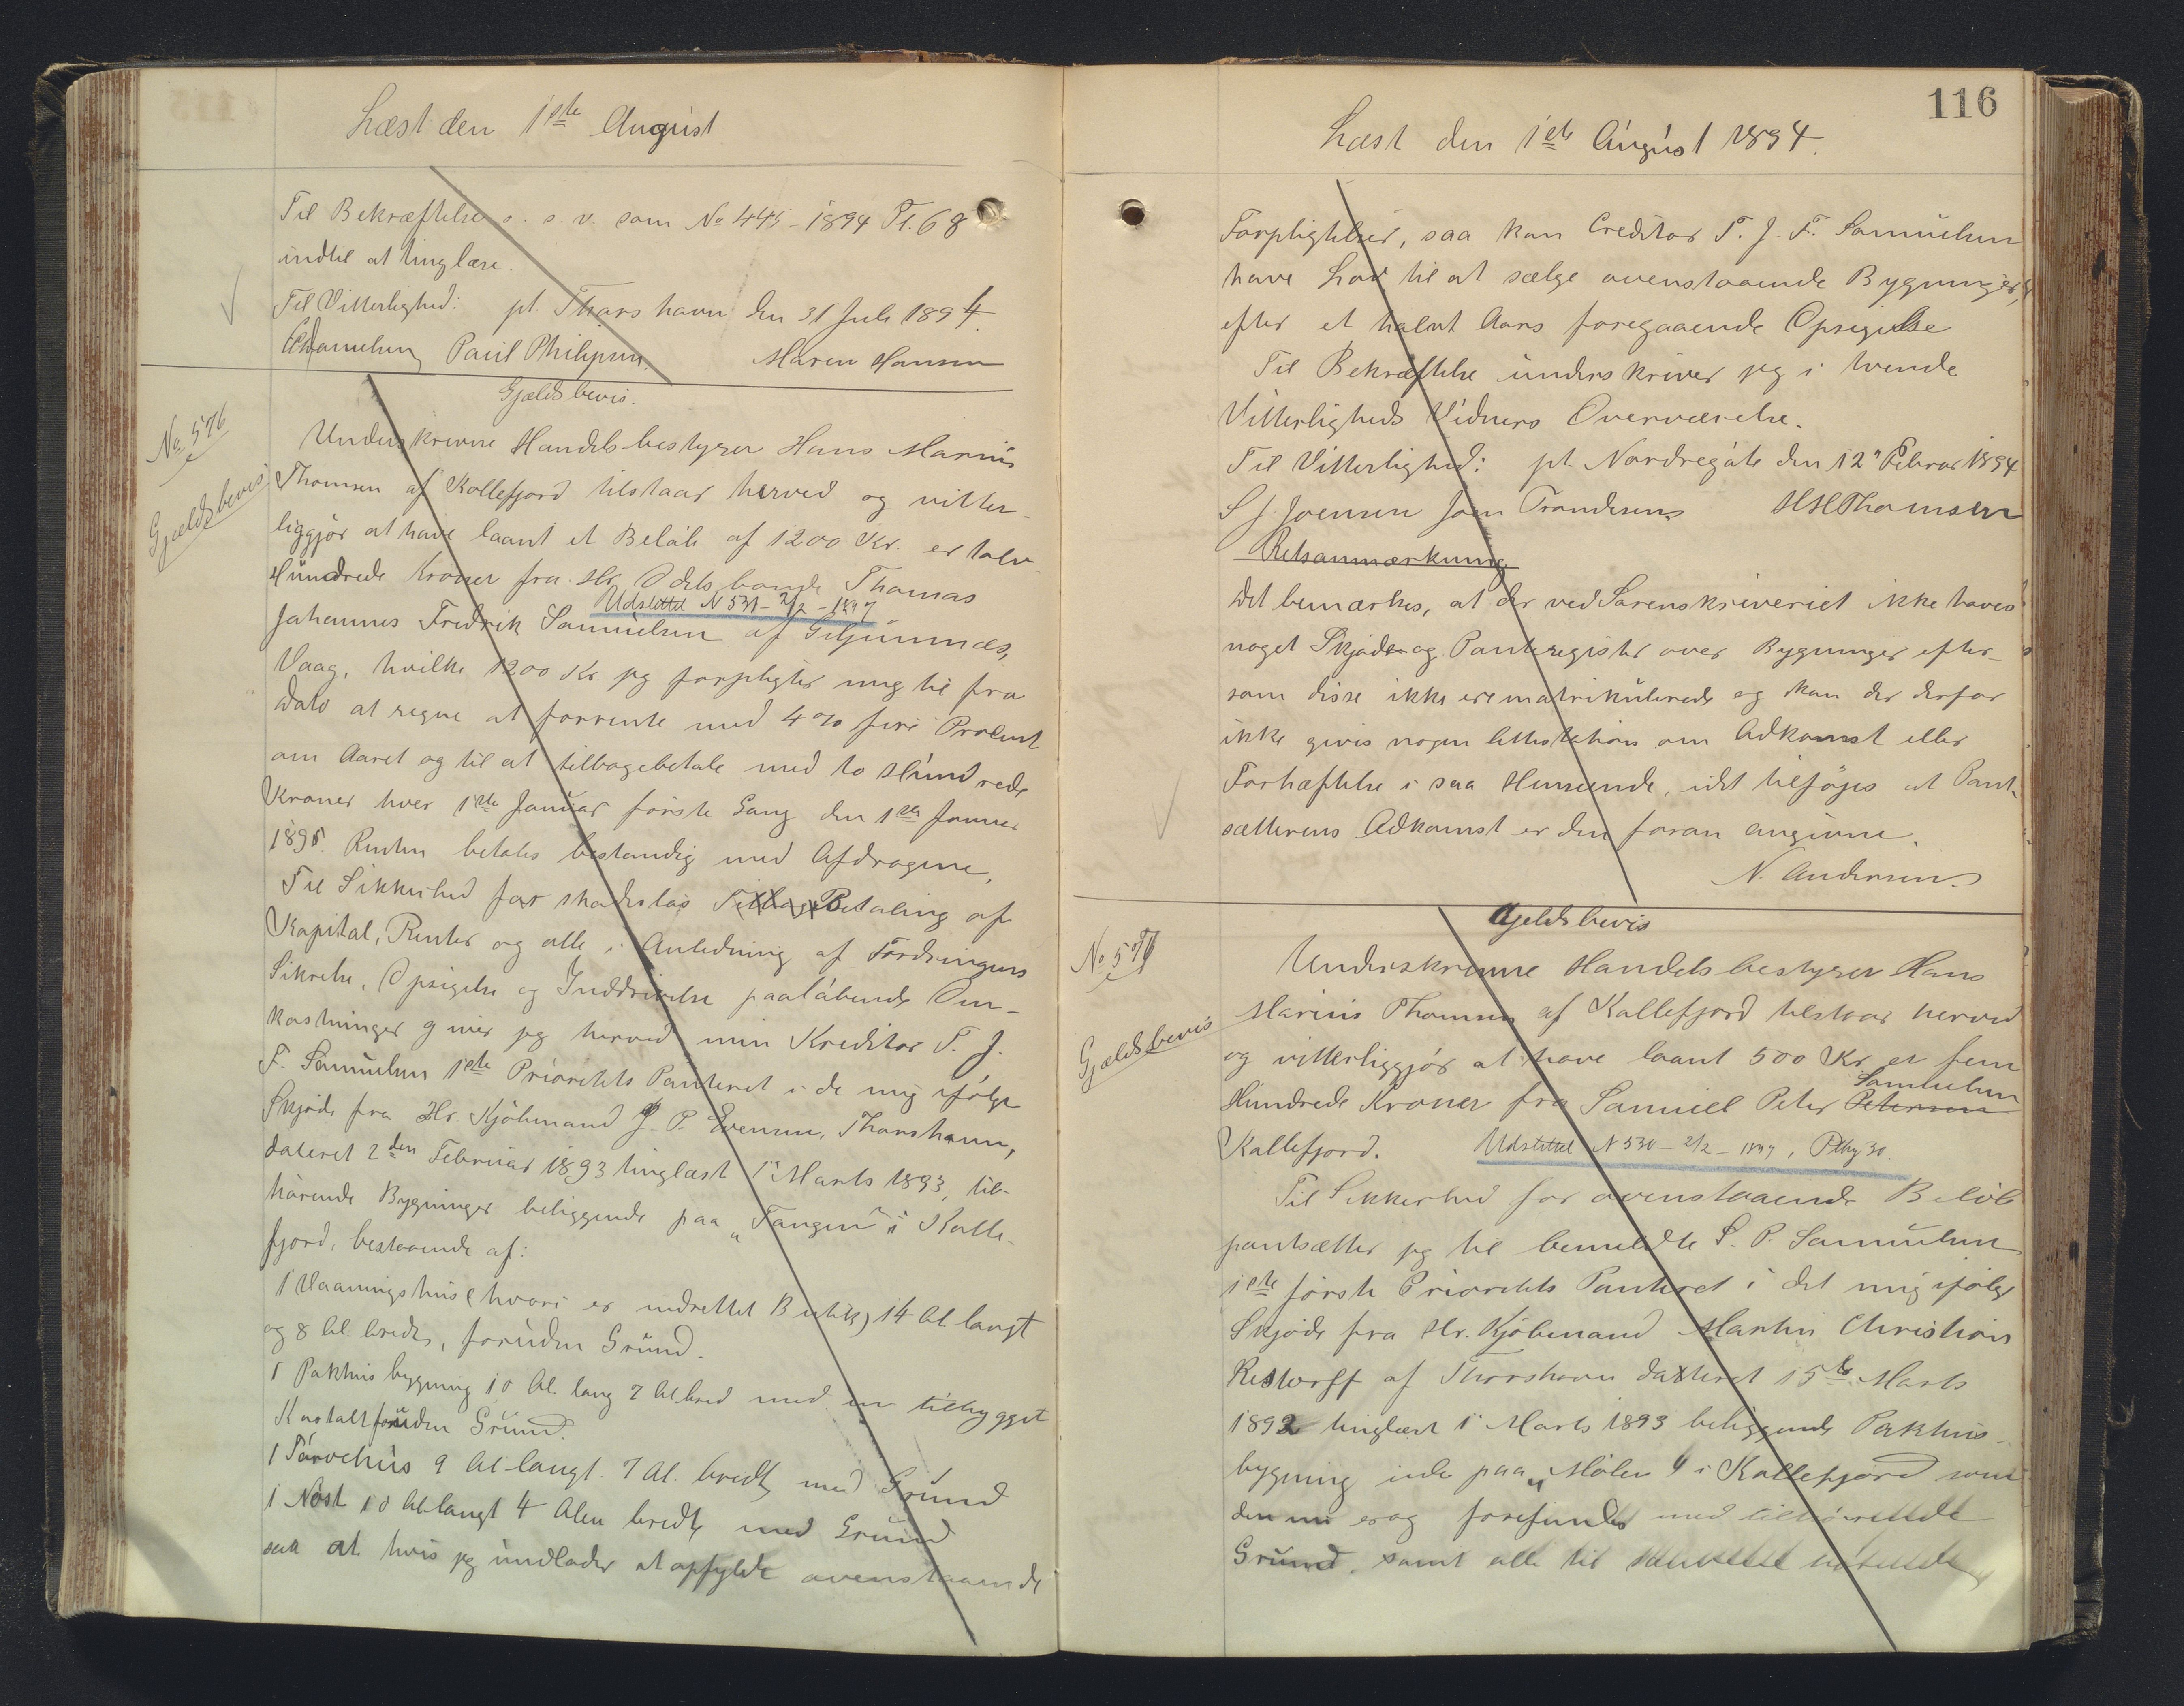 Læst den 1ste August
Til Bekræftelse o. s. v. som No 445 - 1894 Pr. 68
indtil at tinglæse.
Til Vitterlighed: pt. Thorshavn den 31 Juli 1894.
Paul Philipsen. Maren Hansen
Gjældsbevis.
No 576
Gjældsbevis
Underskrevne Handelsbestyrer Hans Marius
Thomsen af Kollefjord tilstaar herved og vitter-
liggjør at have laant et Beløb af 1200 Kr. er tolv
Hundrede Kroner fra Hr. Odelsbonde Thomas
Udslettet N 531 - 2/2 - 1897
Johannes Fredrik Samuelsen af Giljumnæs,
Vaag, hvilke 1200 Kr. jeg forpligter mig til fra
Dato at regne at forrente med 4% fire Procent
om Aaret og til at tilbagebetale med to Hundrede
Kroner hver 1ste Januar første Gang den 1ste Januar
1895. Renten betales bestandig med Afdragene.
Til Sikkerhed for skadesløs Tilbage Betaling af
Kapital, Renter og alle i Anledning af Fordringens
Sikrelse, Opsigelse og Inddrivelse paaløbende Om-
kostninger giver jeg herved min Kreditor T. J.
F. Samuelsen 1ste Prioritets Panteret i de mig ifølge
Skjøde fra Hr. Kjøbmand J. P. Evensen, Thorshavn,
dateret 2den Februar 1893 tinglæst 1' Marts 1893, til-
hørende Bygninger beliggende paa "Tangen" i Kolle-
fjord, bestaaende af:
1 Vaaningshus (hvori er indrettet Butik) 14 Al. langt
og 8 Al. bredt, foruden Grund.
1 Pakhus bygning 10 Al. lang 7 Al. bred med en tilbygget
Kastalt foruden Grund.
1 Tørvehus 9 Al langt. 7 Al. bredt, med Grund
1 Nøst 10 Al. langt 4 Alen bredt, med Grund
saa at hvis jeg undlader at opfylde ovenstaaende
116
Læst den 1ste August 1894.
Forpligtelser, saa kan Creditor T. J. F. Samuelsen
have Lov til at sælge ovenstaaende Bygninger,
efter et halvt Aars foregaaende Opsigelse
Til Bekræftelse underskriver jeg i tvende
Vitterligheds Vidners Overværelse.
Til Vitterlighed: pt. Nordregøte den 12' Februar 1894
S J Joensen Jom Trondesen HMThomsen
Retsanmærkning
Det bemærkes, at der ved Sorenskriveriet ikke haves
noget Skjøde og Panteregister over Bygninger efter-
som disse ikke ere matrikulerede og kan der derfor
ikke gives nogen Attestation om Adkomst eller
Forhæftelse i saa Henseende, idet tilføjes at Pant-
sætterens Adkomst er den foran angivne.
N. Andersen.
Gjeldsbevis
No 577
Gjældsbevis
Underskrevne Handelsbestyrer Hans
Marius Thomsen af Kollefjord tilstaar herved
og vitterliggjør at have laant 500 Kr. er fem
Hundrede Kroner fra Samuel Peter Petersen Samuelsen
Kollefjord. Udslettet N 530 - 2/2 - 1897, Ptbg 30.
Til Sikkerhed for ovenstaaende Beløb
pantsætter jeg til bemeldte S. P. Samuelsen
1ste første Prioritets Panteret i det mig ifølge
Skjøde fra Hr. Kjøbmand Martin Christian
Restorff af Thorshavn dateret 15de Marts
1892 tinglæst 1' Marts 1893 beliggende Pakhus-
bygning inde paa "Mølen" i Kollefjord som
den nu er og forefindes med tilhørende
Grund, samt alle til samme